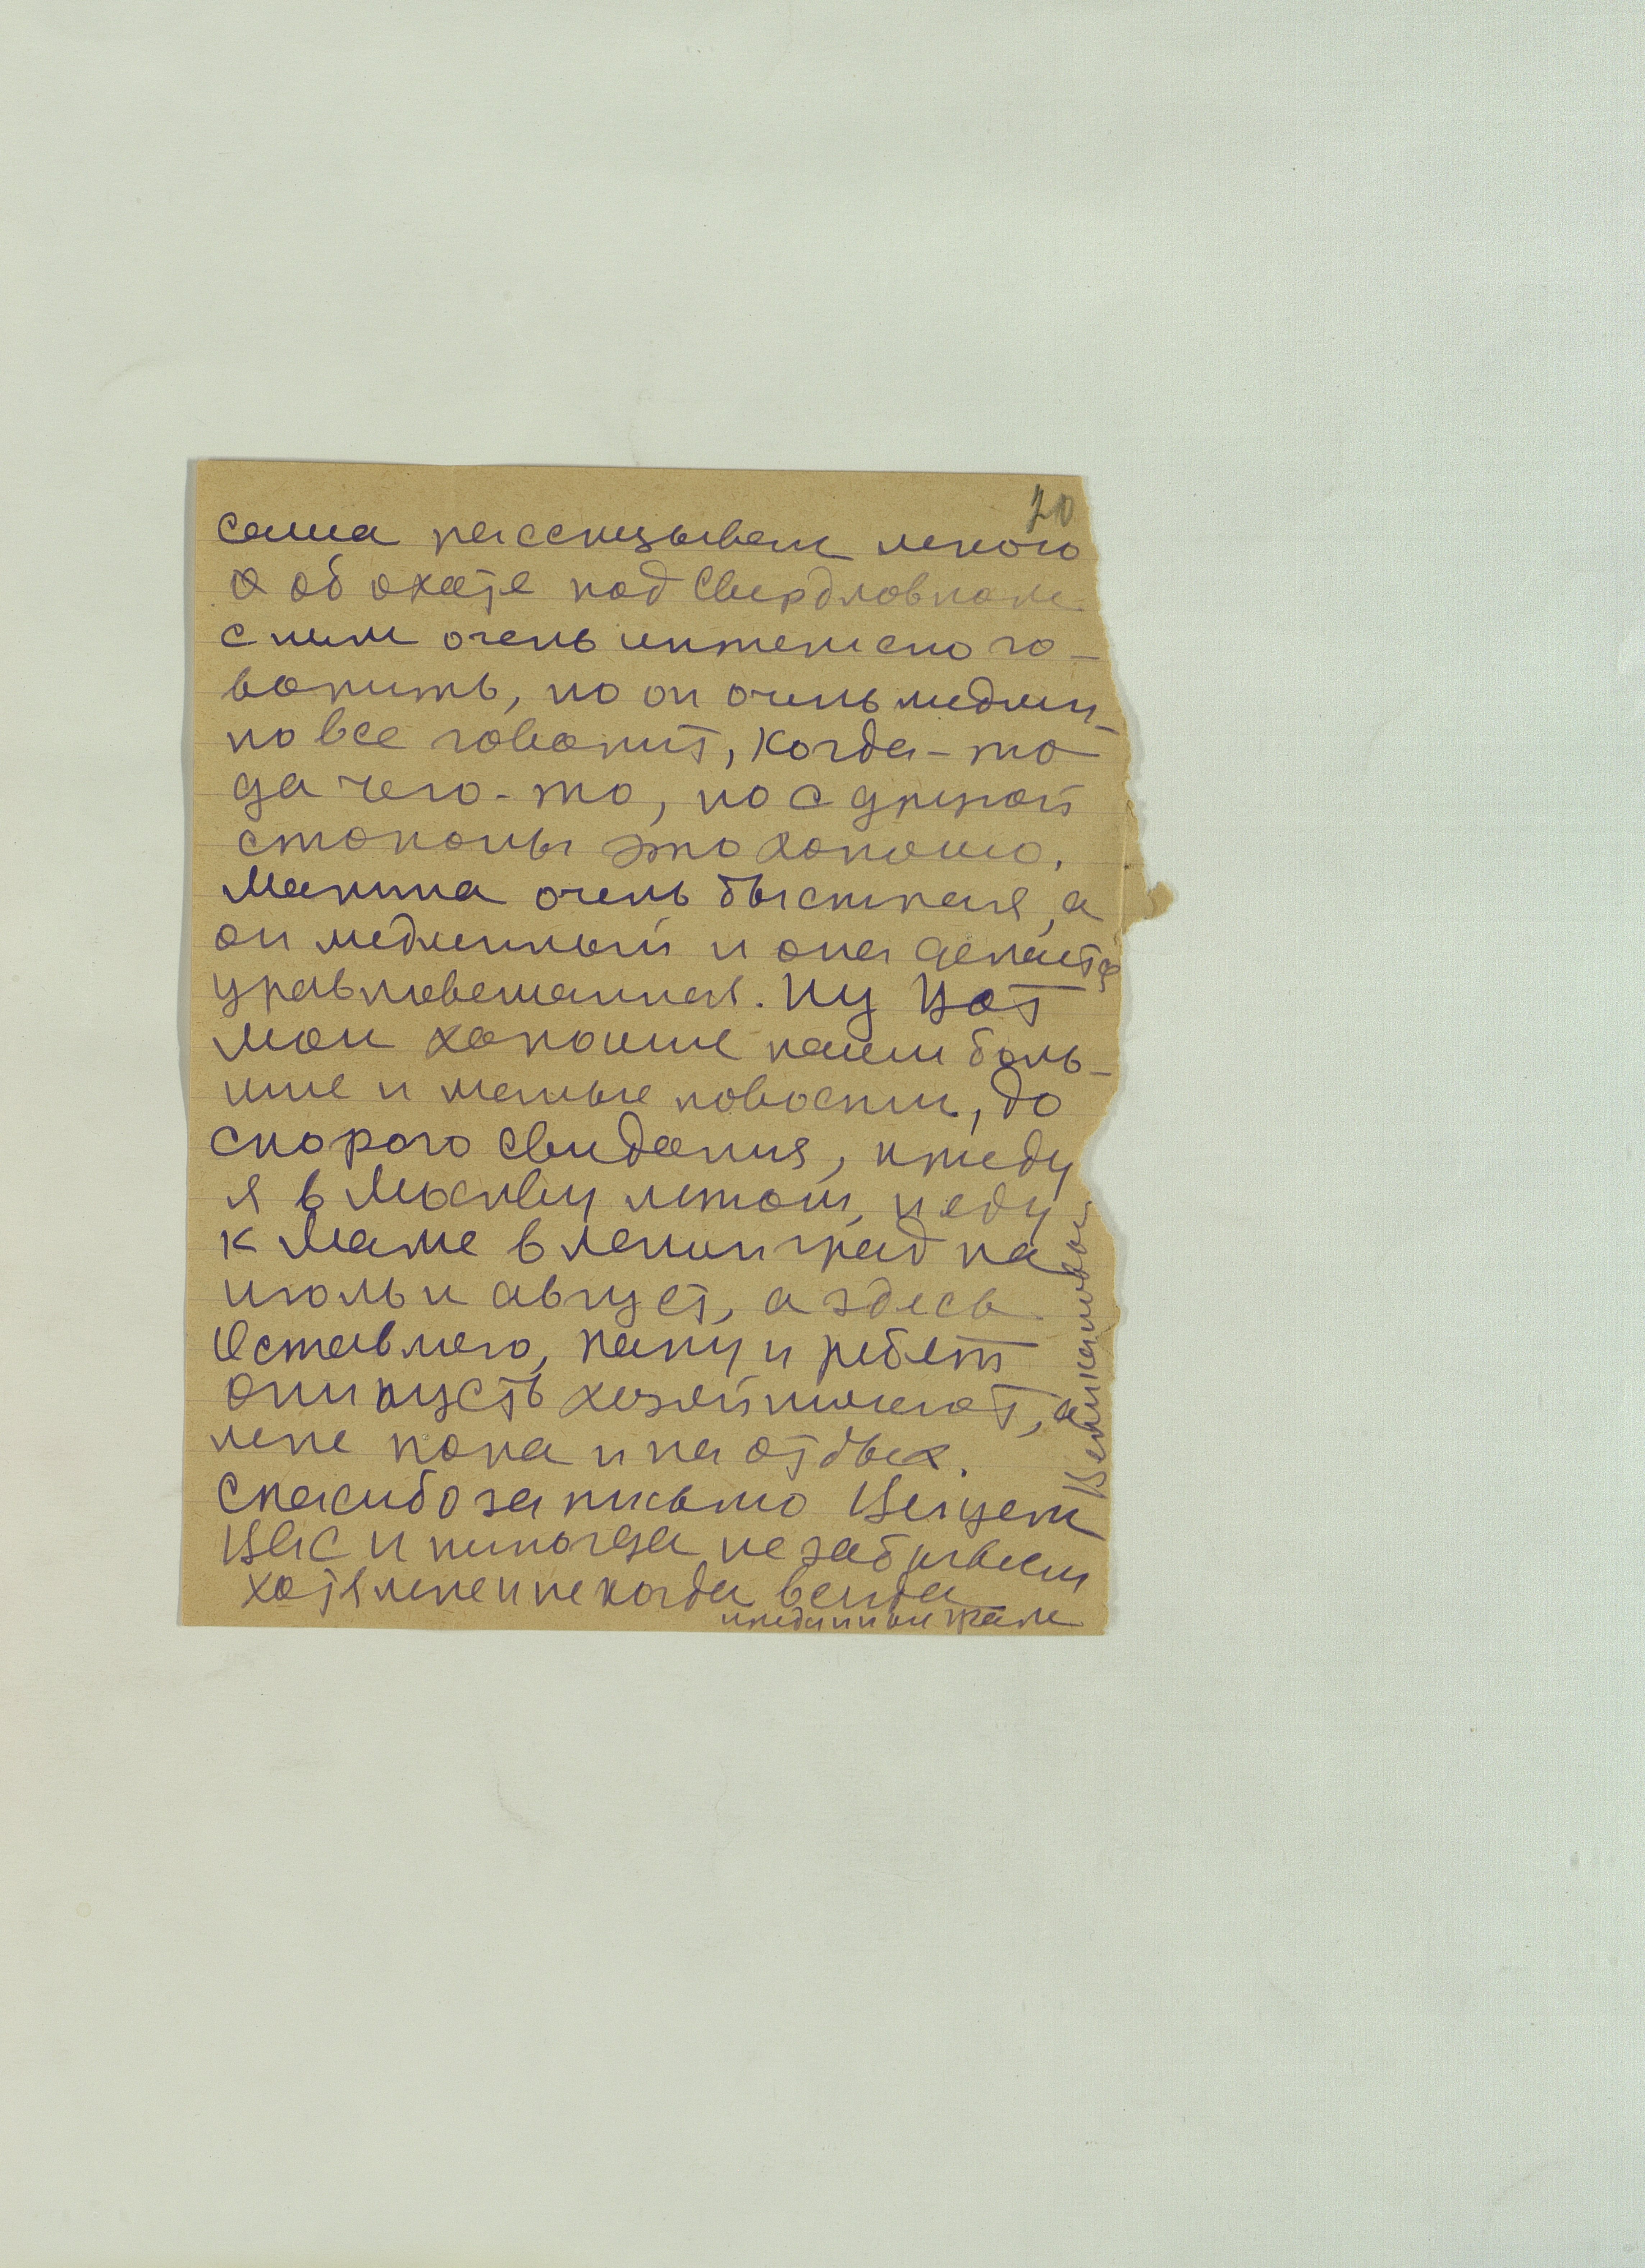 20
Саша рассказывает много
об охоте под Свердловском
с ним очень интересно го-
ворить, но он очень медлен-
но все говорит, когда-то
да чего-то, но с другой
стороны это хорошо.
Марина очень быстрая, а
он медленный и она делается
уравновешанная. Ну вот
мои хорошие наши боль-
шие и малые новости, до
скорого свидания, приеду
я в Москву летом, и еду
к маме в Ленинград на
июль и август, а здесь
Оставляю, папу и ребят
они пусть хозяйничают, а
мне пора и на отдых.
Спасибо за письмо Целуем
Вас и никогда не забываем
хотя мне и некогда всегда
преданный Вам